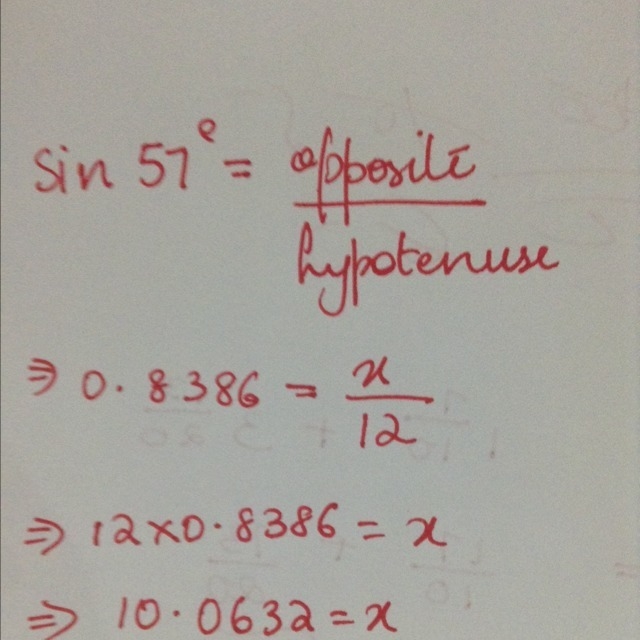 sin 57° = opposite
hypotenuse
⇒ 0.8386 = x
12
⇒ 12×0.8386 = x
⇒ 10.0632 = x